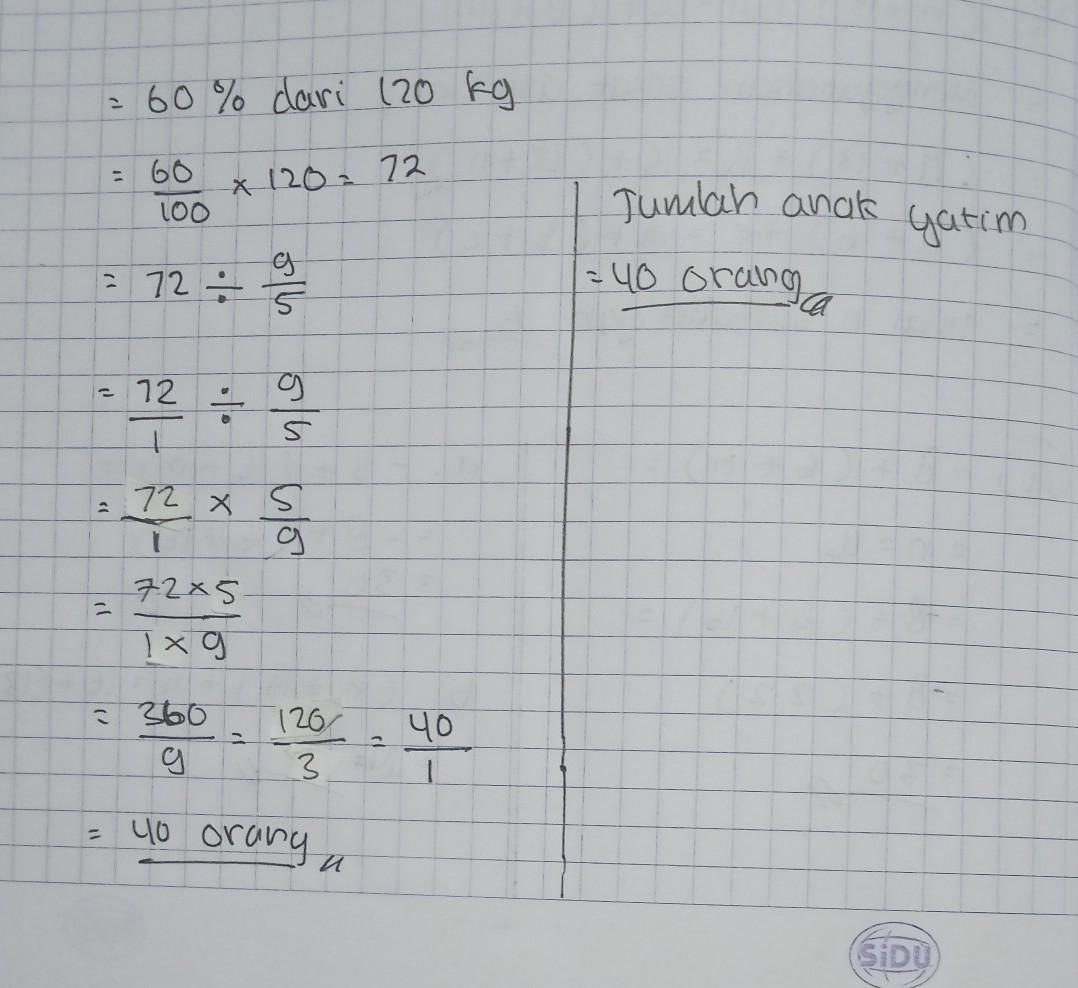 = 60 % dari 120 kg
= 60/100 × 120 = 72
= 72 ÷ 9/5
= 72/1 ÷ 9/5
= 72/1 × 5/9
= 72×5/1×9
= 360/9 = 120/3 = 40/1
= 40 orang
Jumlah anak yatim
= 40 orang
SiDU